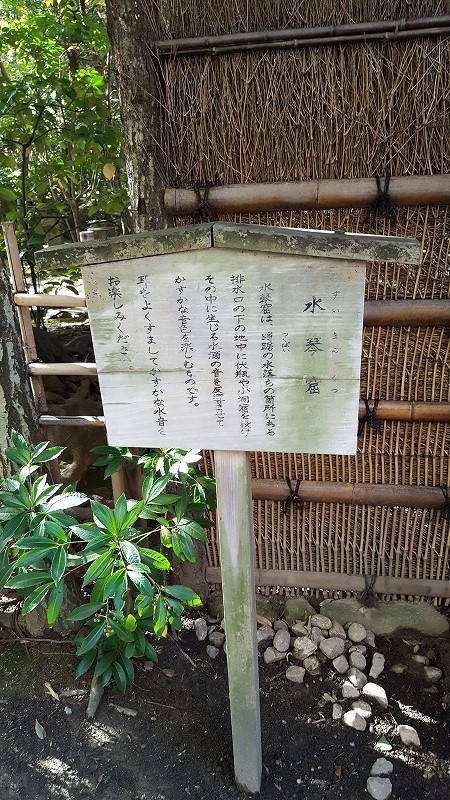 水琴窟
すいきんくつ
水琴窟は、蹲踞の水落ちの箇所にある
つくばい
排水口の下の地中に伏瓶や小洞窟を設け
その中に生じる水滴の音を反響させて
かすかな音色を楽しむものです。
耳をよくすましてかすかな水音を
お楽しみください